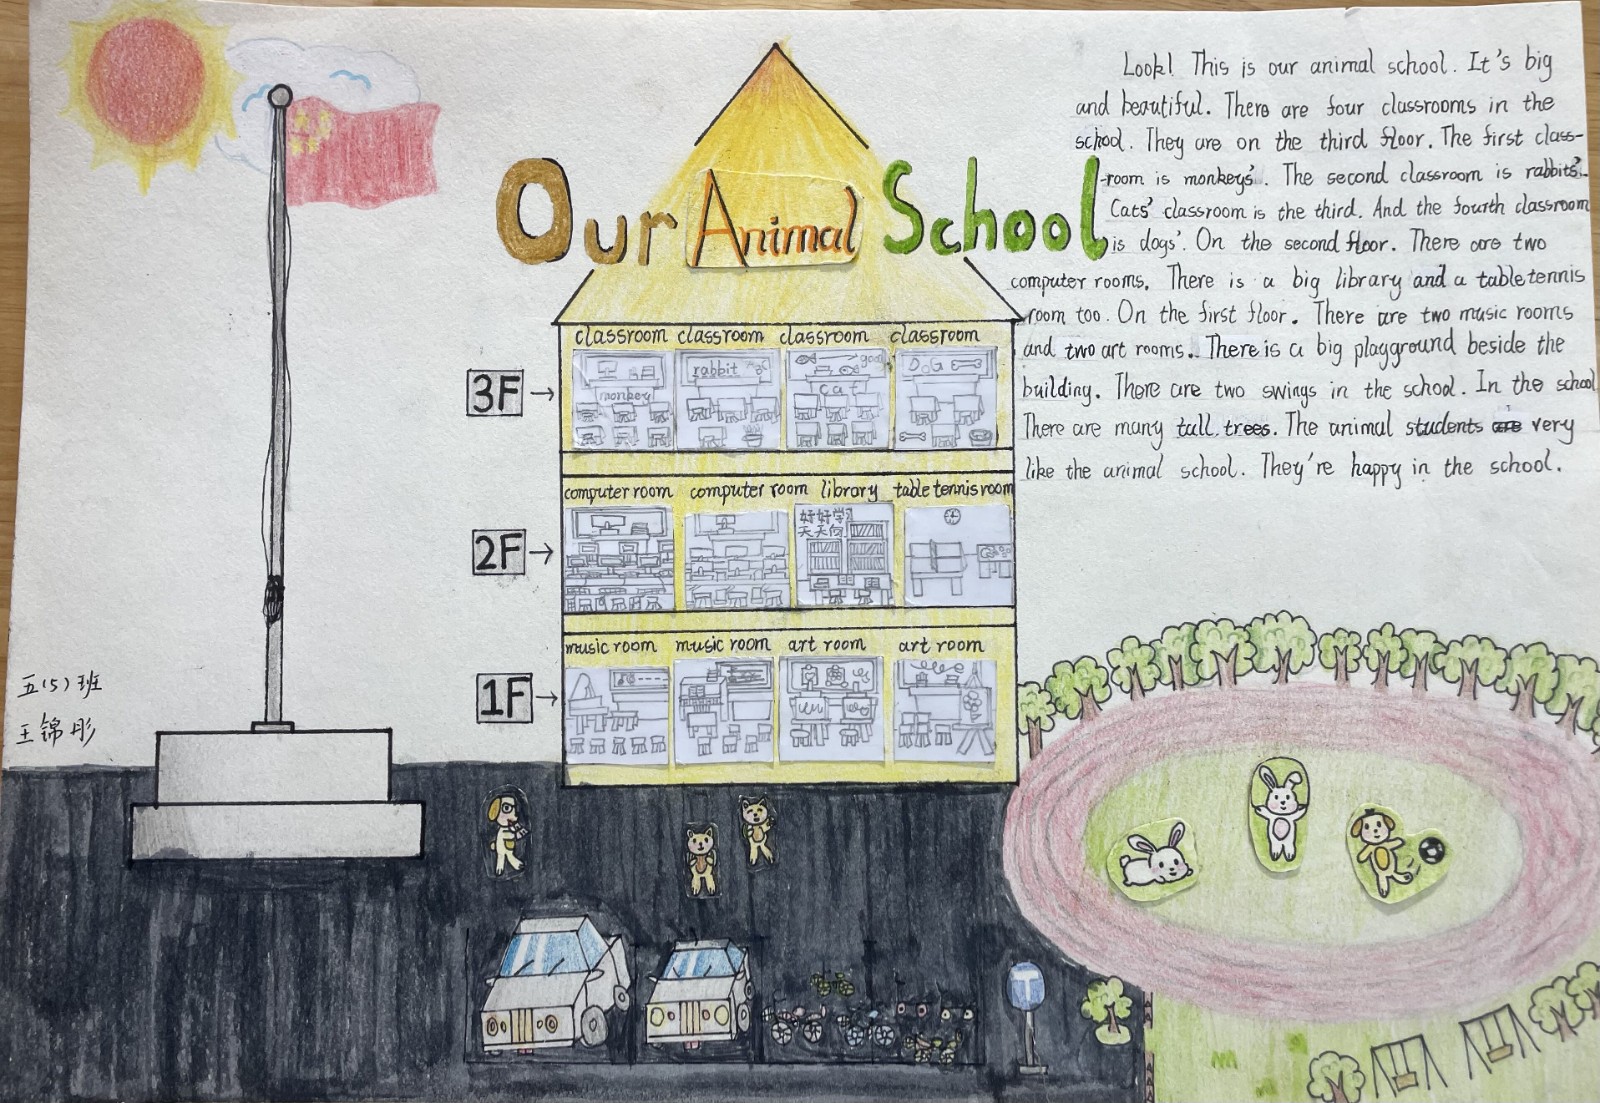 Look! This is our animal school. It's big
and beautiful. There are four classrooms in the
school. They are on the third floor. The first class-
-room is monkeys'. The second classroom is rabbits'.
Cats' classroom is the third. And the fourth classroom
is dogs'. On the second floor. There are two
computer rooms. There is a big library and a table tennis
room too. On the first floor. There are two music rooms
and two art rooms. There is a big playground beside the
building. There are two swings in the school. In the school
There are many tall trees. The animal students are very
like the animal school. They're happy in the school.
Our Animal School
classroom classroom classroom classroom
3F
monkey
rabbit
cat
DOG
computer room computer room library table tennis room
2F
好好学习
天天向
music room music room art room art room
1F
五(5)班
王锦彤